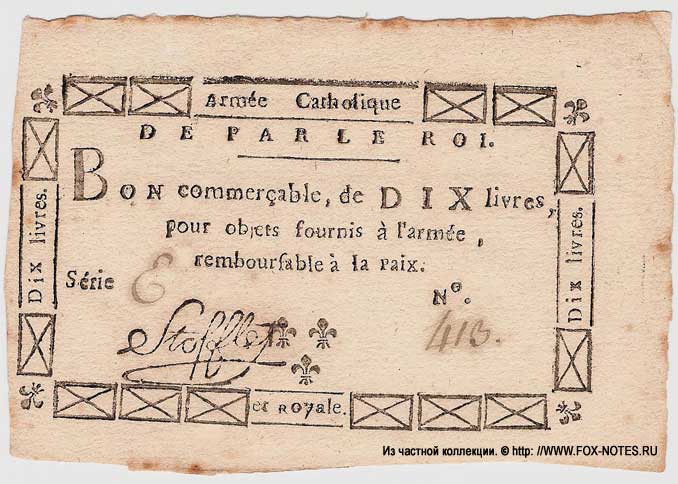 Armée Catholique
DE PAR LE ROI.
BON commerçable, de DIX livres,
pour objets fournis à l'armée,
rembourſable à la paix.
Série E
Nº.
413.
Stofflet
et ROYALE.
DIX livres.
DIX livres.
Из частной коллекции. © http://WWW.FOX-NOTES.РУ